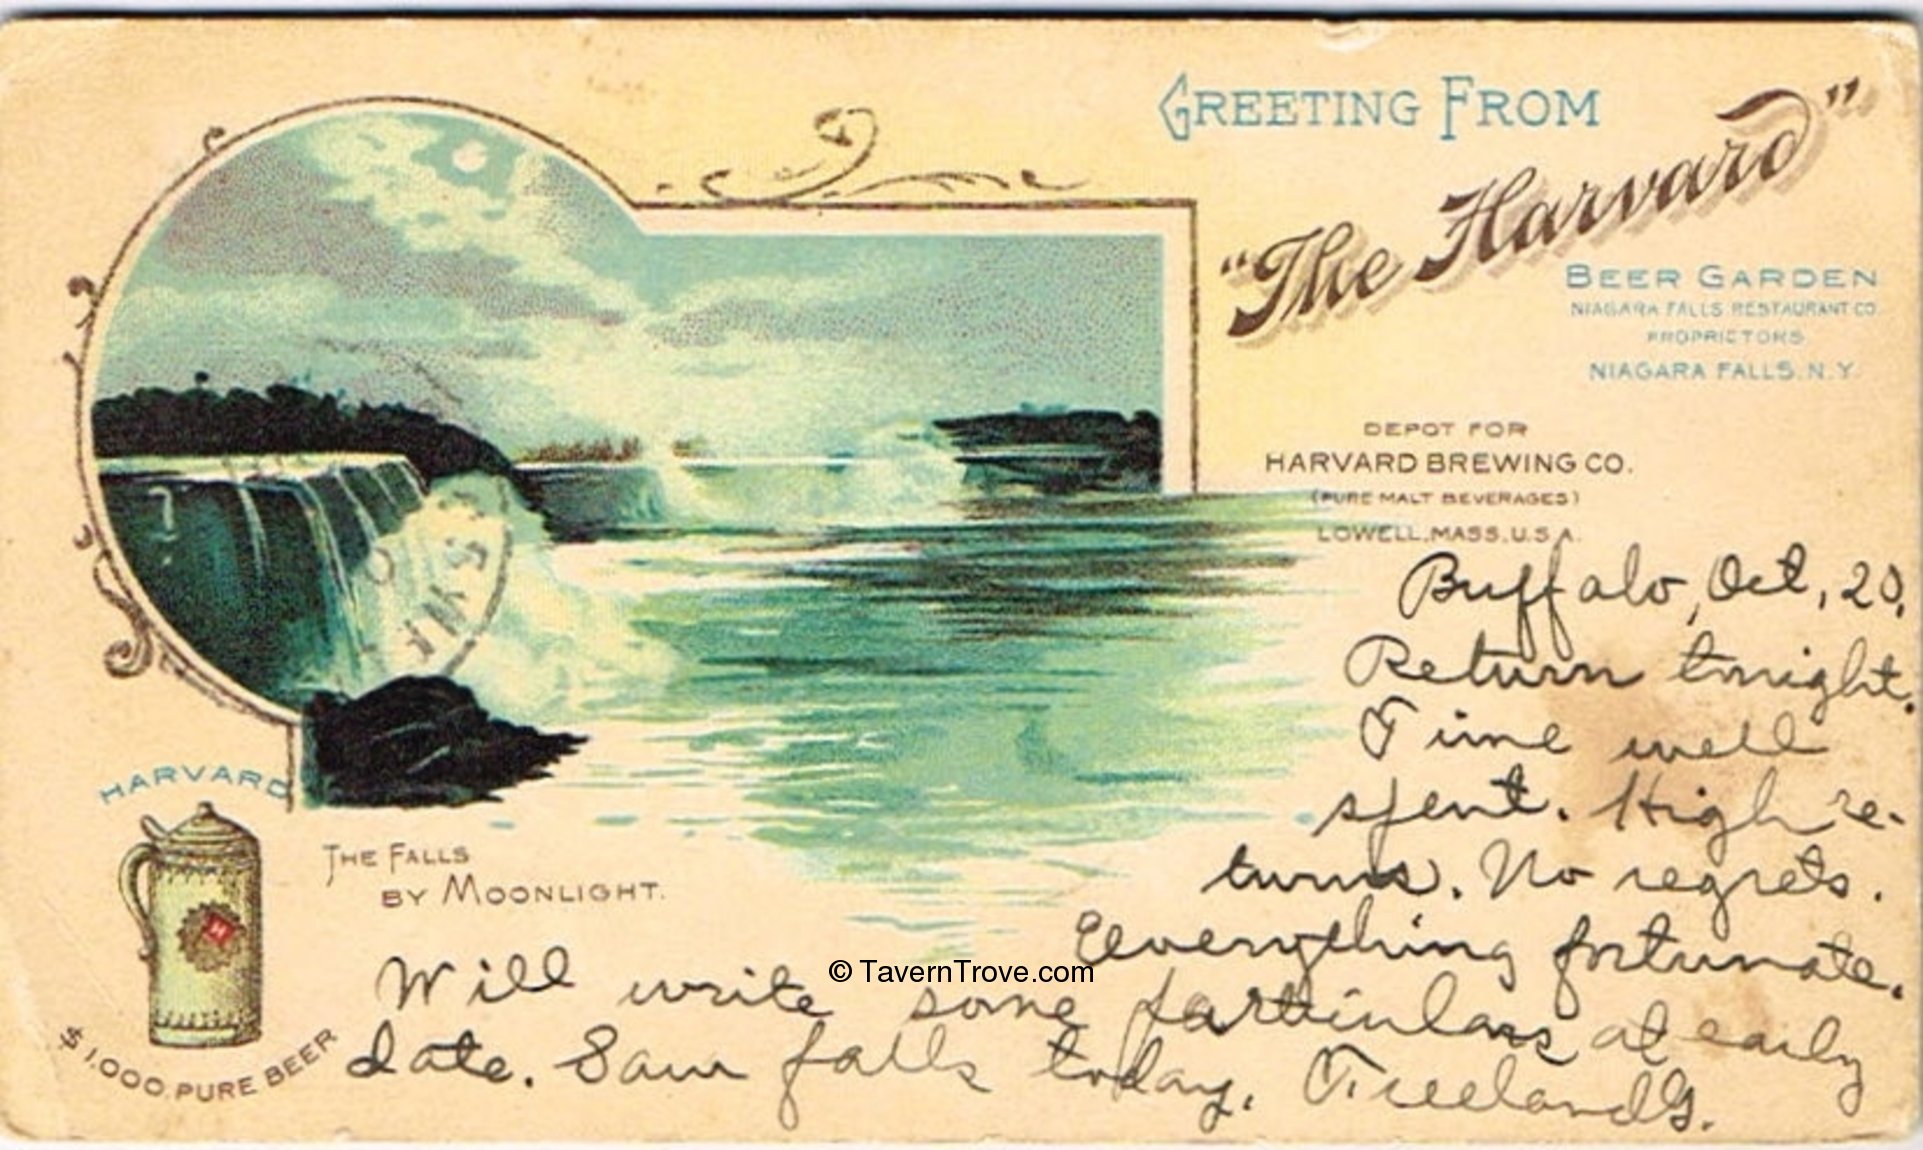 GREETING FROM
"The Harvard"
BEER GARDEN
NIAGARA FALLS RESTAURANT CO.
PROPRIETORS
NIAGARA FALLS, N.Y.
DEPOT FOR
HARVARD BREWING CO.
(PURE MALT BEVERAGES)
LOWELL, MASS. U.S.A.
Buffalo, Oct, 20,
Return tonight.
Time well
spent. High re-
turns. No regrets.
Everything fortunate.
Will write some particulars at early
date. Saw falls today.
HARVARD
H
$1,000 PURE BEER
THE FALLS
BY MOONLIGHT.
© TavernTrove.com